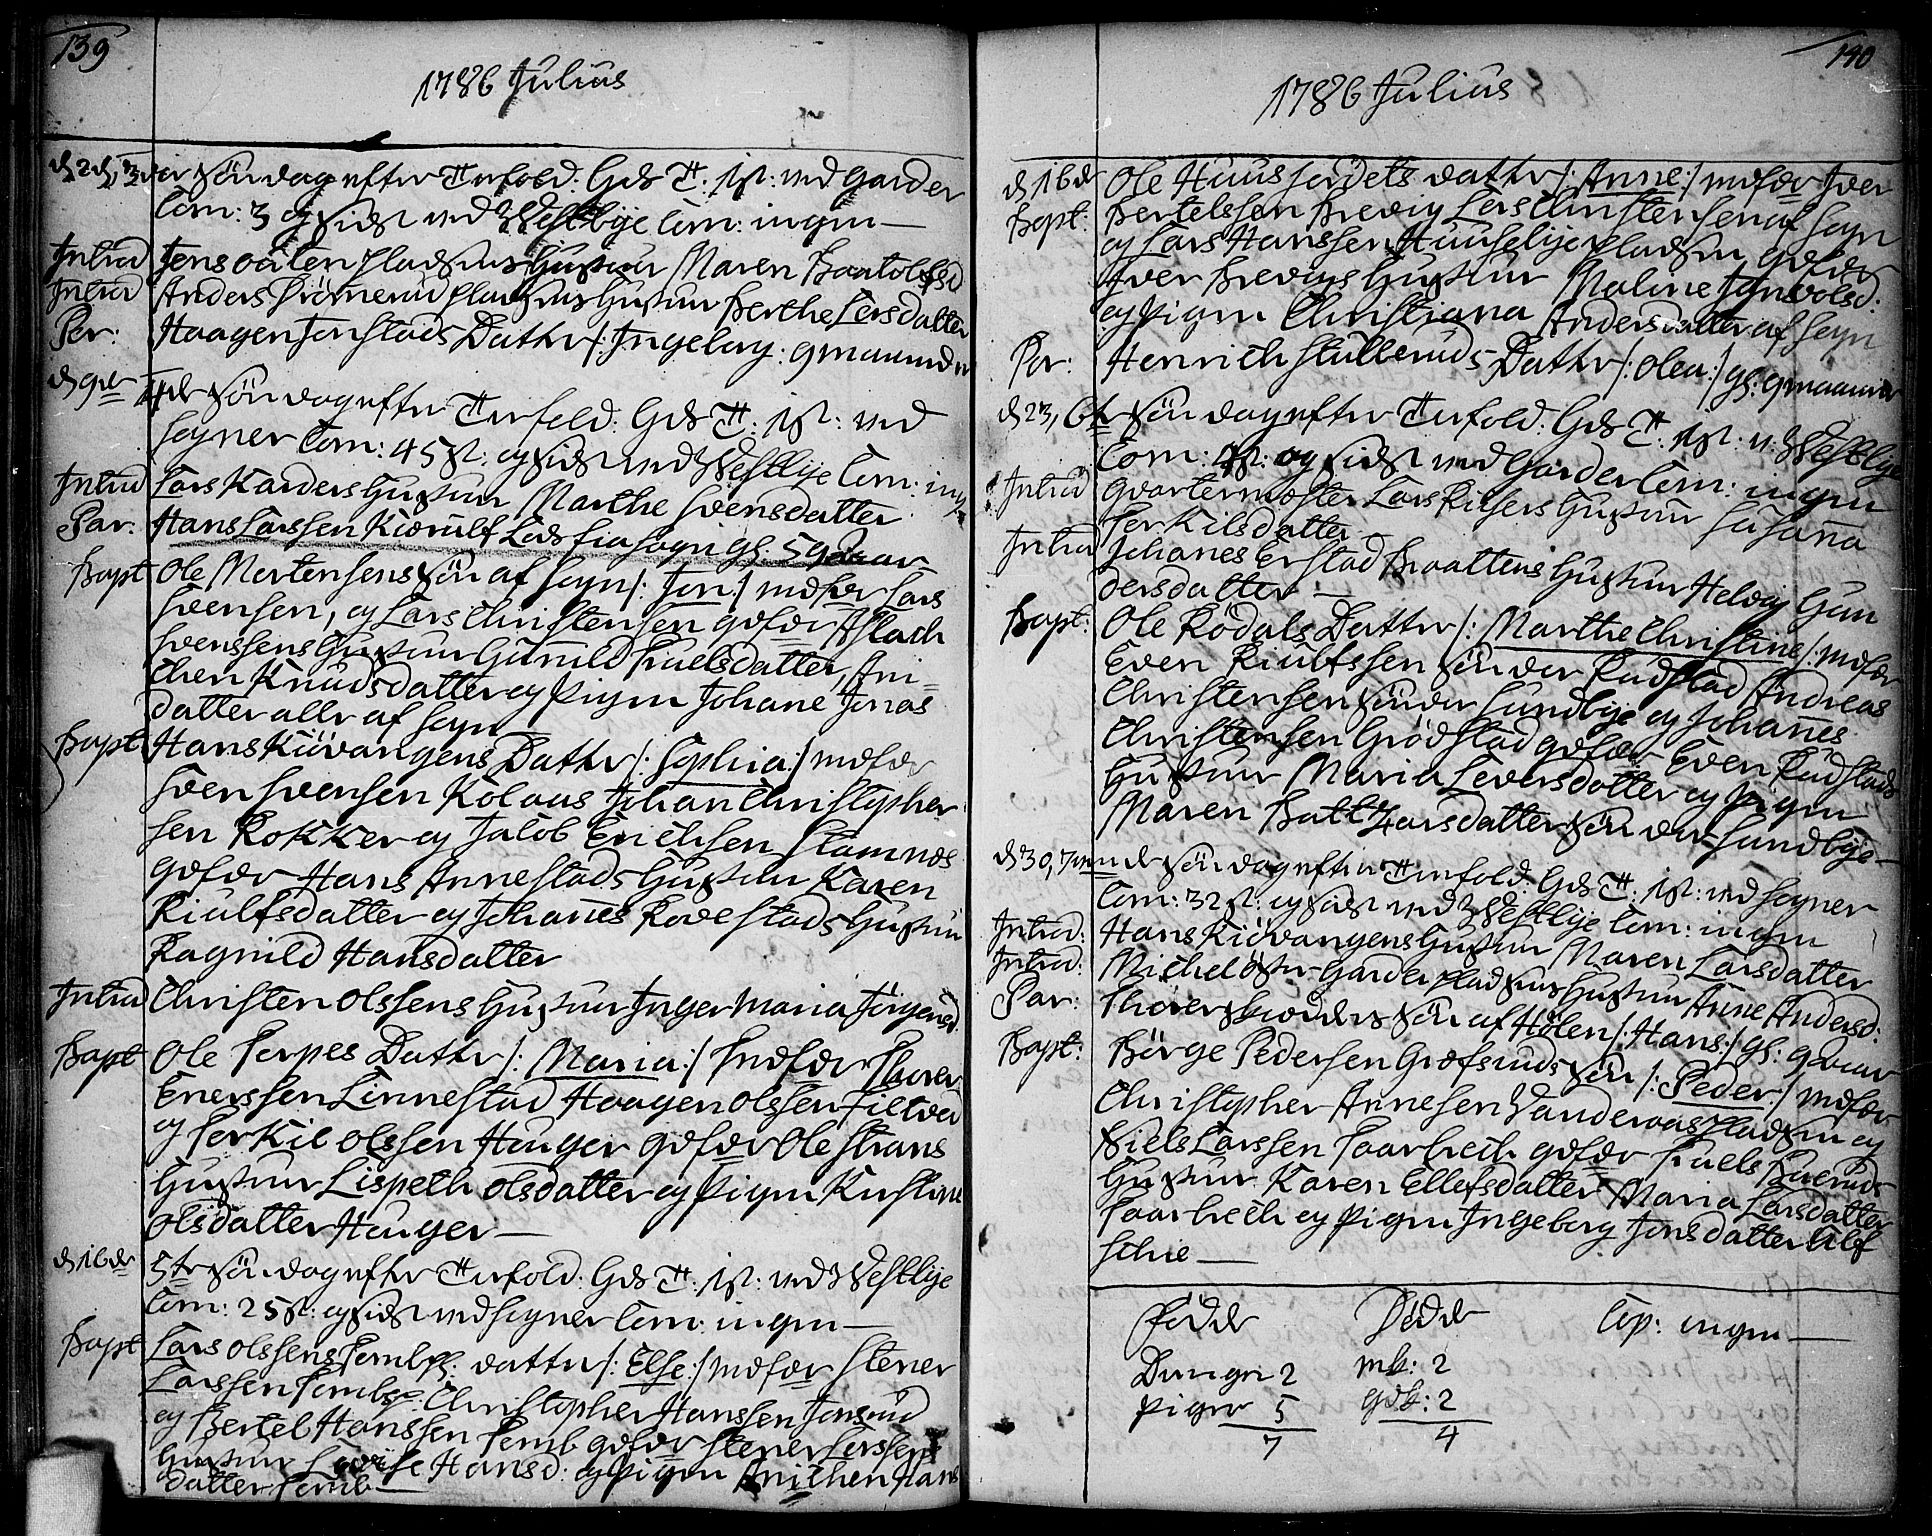 139
1786 Julius
d 2d, 3die Söndag efter Trefold: Guds T: 1st: ved Garder
Com: 3 og sidst ved Westbye Com: ingen —
Introd Jens oälen pladsens Hustrue Maren Baatolfsd
Introd Anders Hustrue Berthe Larsdatter
Par: Haagen Jonstads Datter /: Ingeborg: 9 maaneder
d 9de 4de Söndag efter Trefold: Guds T: 1st: ved
Sogner Com: 45 st: og sidst ved Westbye Com: ing
Introd Lars Karders Hustrue Marthe Svensdatter
Par: Hans Larssen fra Sogn gl: 59 aar
Bapt Ole Mortensens Sön af Sogn /: Jon :/ mdfær Lars
Svensen, og Lars Christensen qdfær Aslach
Svensens Hustrue Gunild Truelsdatter, Ani-
chen Knudsdatter og Pigen Johane Jonas
datter alle af Sogn
Bapt Hans Kiövangens Datter /: Sophia :/ mdfær
Sven Svensen Kolaas Johan Christopher
sen Rokker og Jacob Erichsen Stamnæs
qdfær Hans Annestads Hustrue Karen
Kiulfsdatter og Johannes Rovestads Hustrue
Ragnild Hansdatter
Introd Christen olssens Hustrue Inger Maria Jörgensd
Bapt Ole Terpes Datter /: Maria :/ mdfær Thorer
Enerssen Linnestad Haagen olssen Filtved
og Terkil olssen Hauger qdfær Ole Strans
Hustrue Lispeth olsdatter og Pigen Kirstine
olsdatter Hauger —
d 16de 5te Söndag efter Trefold: Guds T: 1st: ved Westbye
Com: 25 st: og sidst ved Sogner Com: ingen —
Bapt Lars olssens Semb pl: datter /: Else :/ mdfær Stener
Larssen Semb Christopher Hanssen Jonsrud
og Bertel Hanssen Semb qdfær Stener Larssens
Hustrue Lovise Hansd: og Pigen Anichen Hans
datter Semb —
140
1786 Julius
d 16de Ole Huusfordets datter /: Anne :/ mdfær Iver
Bapt: Bertelssen Brevig Lars Christensen af Sogn
og Lars Hanssen Huusebye Pladsen qdfær
Iver Brevigs Hustrue Maline
og Pigen Christiana Andersdatter af Sogn
Par: Henrich Stulleruds Datter /: olea :/ gl: 9 maaneder
d 23, 6te Söndag efter Trefold: Guds T: 1st: v: Westbye
Com: st: og sidst ved Garder Com: ingen
Introd Qvartermester Lars Riisers Hustrue Susanna
Terkilsdatter —
Introd Johannes Erstad Braattens Hustrue Helvig Gun
dersdatter —
Bapt: Ole Rödals Datter /: Marthe Christine :/ mdfær
Even Kiulfssen Sönder Rudstad Andreas
Christensen Sönder Sundbye og Johannes
Christensen Grödstad qdfær Even Rudstads
Hustrue Maria Leversdatter og Pigen
Maren Balt Zarsdatter Sönder Sundbye —
d 30, 7ende Söndag efter Trefold: Guds T: 1st: ved Sogner
Com: 32 st: og sidst ved Westbye Com: ingen
Introd: Hans Kiövangens Hustrue Maren Larsdatter
Introd: Michel öster Garder pladsens Hustrue Anne Andersd:
Par: Thorer Skræders Sön af Hölen /: Hans :/ gl:
Bapt: Börge Pedersen Græfsruds Sön /: Peder :/ mdfær
Christopher Annesen Pladsen og
Niels Larssen Taarbech qdfær Truels
Hustrue Karen Ellefsdatter Maria Larsdatter
Taarbech og Pigen Ingeborg Jonsdatter Ulf
schie —
Födde Döde Cop: ingen —
Drenge 2 mk: 2
Piger 5 qdk: 2
7 4